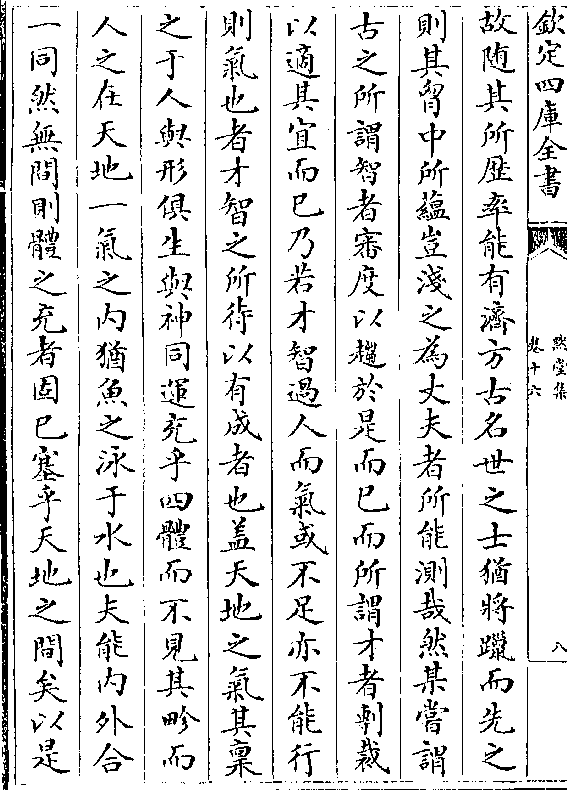 欽定四庫全書
默堂集
卷十六
八
故随其所歴率能有濟方古名世之士猶將躐而先之
則其胷中所藴豈淺之為丈夫者所能測哉然某嘗謂
古之所謂智者審度以趨於是而已而所謂才者剸裁
以適其宜而已乃若才智過人而氣或不足亦不能行
則氣也者才智之所待以有成者也盖天地之氣其稟
之于人與形俱生與神同運充乎四體而不見其畛而
人之在天地一氣之内猶魚之泳于水也夫能内外合
一同然無間則體之充者固已塞乎天地之間矣以是